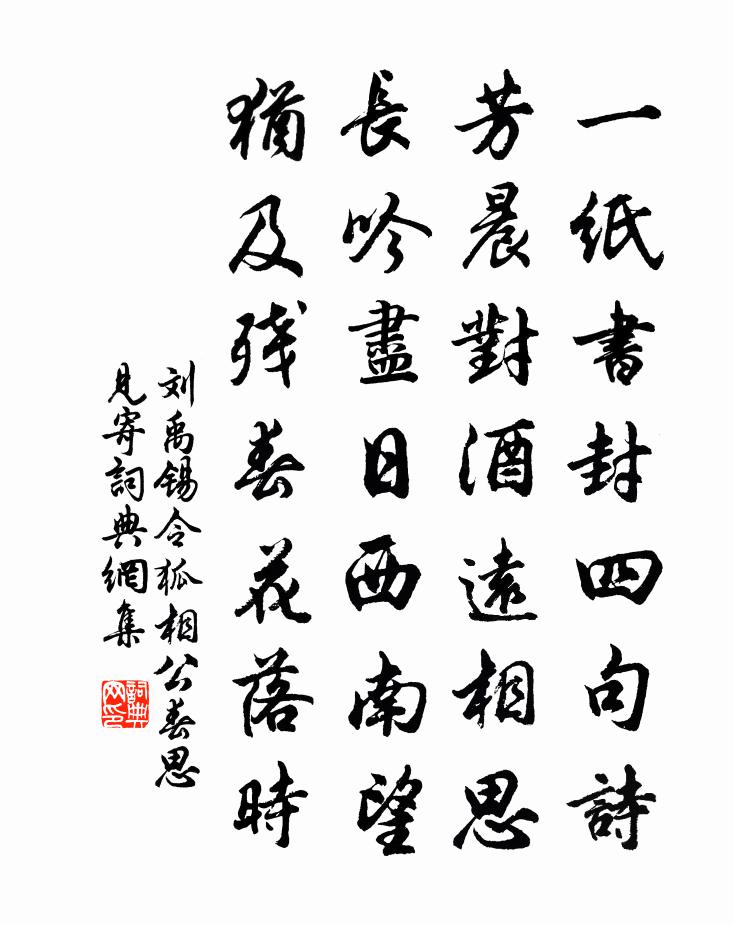 一紙書封四句詩
芳晨對酒遠相思
長吟盡日西南望
猶及残春花落時
刘禹錫令狐相公春思
見寄詞典網集
詞典网印